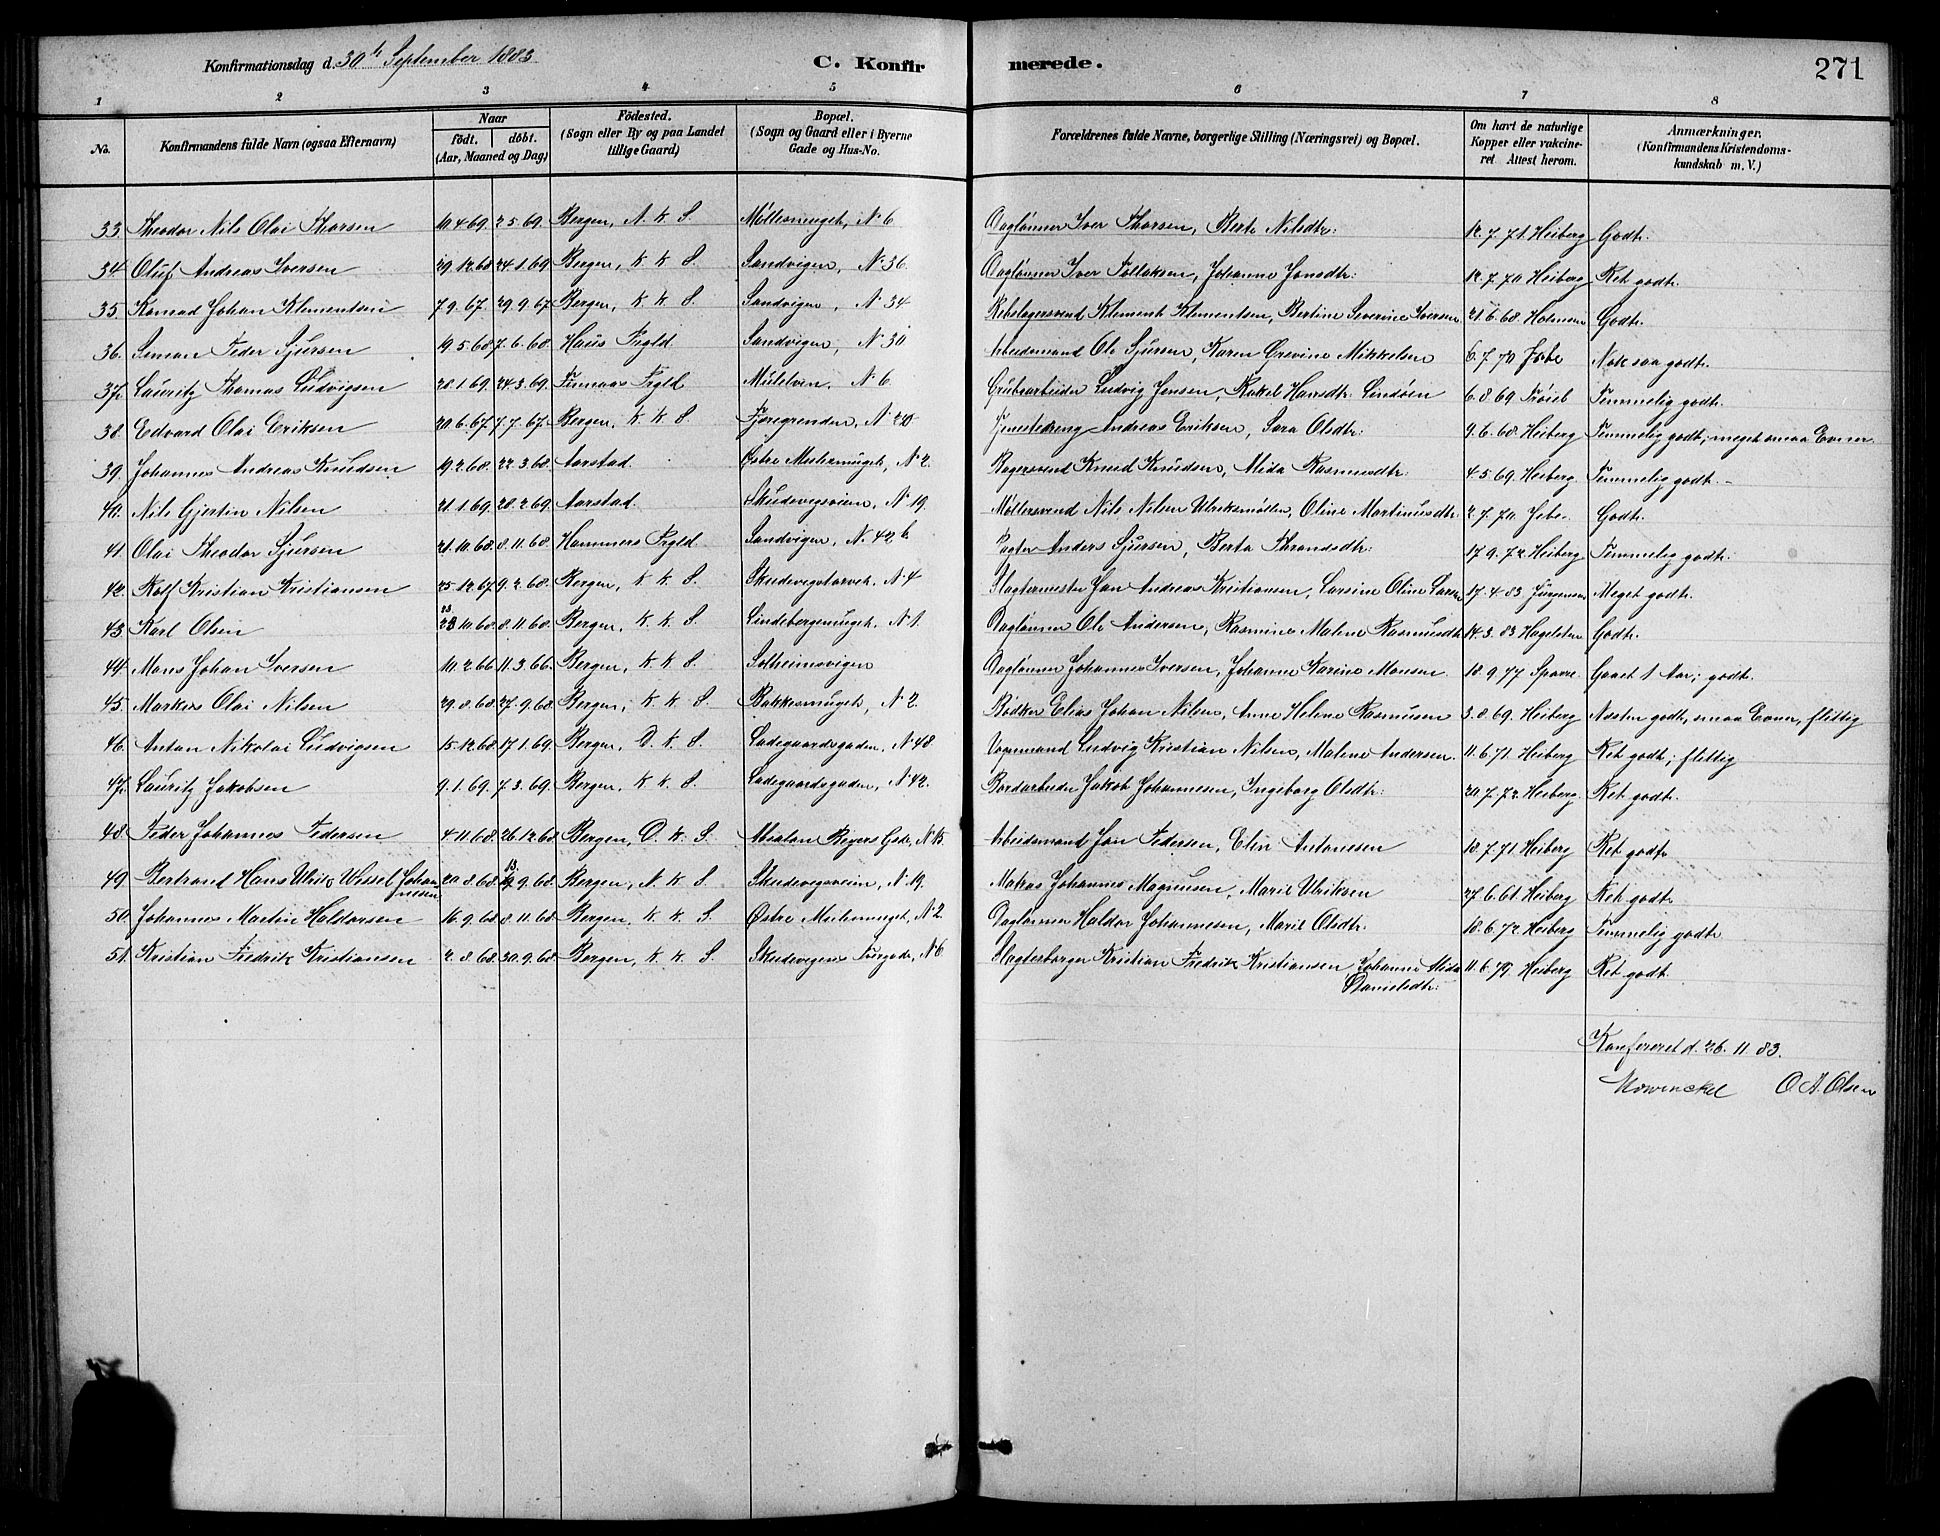 Konfirmationsdag d. 30te September 1883 C. Konfirmerede. 271
1 2 3 4 5 6 7 8
No. Konfirmandens fulde Navn (ogsaa Efternavn) Naar født. døbt. (Aar, Maaned og Dag) Födested. (Sogn eller By og paa Landet tillige Gaard) Bopæl. (Sogn og Gaard eller i Byerne Gade og Hus-No. Forældrenes fulde Navne, borgerlige Stilling (Næringsvei) og Bopæl. Om havt de naturlige Kopper eller vakcineret Attest herom. Anmærkninger. (Konfirmandens Kristendomskundskab m. V.)
33. Theodor Nils Olai Thorsen 10.4.69 2.5.69. Bergen, N. K. S. Møllesmuget, N. 6 Daglønner Iver Thorsen, Berte Nilsdtr: 12.7.71 Heiberg Godt.
34. Oluf Andreas Iversen 29.12.68 24.1.69. Bergen, K. K. S. Sandvigen, N. 36. Daglønner Iver Tollaksen, Johanne Jonsdtr: 12.7.70 Heiberg Ret godt.
35. Konrad Johan Klementsen 7.9.67. 29.9.67 Bergen, K. K. S. Sandvigen, N. 34 Rebslagersvend Klement Klementsen, Bertine Severine Iversen 21.6.68 Godt.
36. Simon Peder Sjursen 19.5.68 7.6.68. Haus Prgld Sandvigen, N. 30 Arbeidsmand Ole Sjursen, Karen Mikkelsen 6.7.70 Nok saa godt.
37. Lauritz Thomas Ludvigsen 28.1.69. 24.3.69. Finnaas Prgld Mulelven. N. 6 Grubearbeider Ludvig Jensen, Rakel Hansdtr: Lindøen 6.8.69 Temmelig godt.
38. Edvard Olai Eriksen 20.6.67 7.7.67. Bergen, K. K. S. Fjøsgrenden, N. 20 Tjenestedreng Andreas Eriksen, Sara Olsdtr: 9.6.68 Heiberg Temmelig godt; meget smaa Evner.
39. Johannes Andreas Knudsen 19.2.68. 22.3.68 Aarstad. Østre Mulesmuget, N. 2. Bagersvend Knud Knudsen, Mida Rasmusdtr: 4.5.69. Heiberg. Temmelig godt.
40. Nils Gjertin Nilsen 21.1.69. 28.2.69 Aarstad. Skudevigsveien, N. 19. Møllersvend Nils Nilsen Ulriksmøllen, Oline Martinusdtr: 2.7.70 Godt.
41. Olai Theodor Sjursen 21.10.68 8.11.68. Hammers Prgld. Sandvigen, N. 42 b Anders Sjursen, Berta Throndsdtr: 17.9.72 Heiberg Temmelig godt.
42. Rolf Kristian Kristiansen 25.12.67 9.2.68. Bergen, K. K. S. Skudevigstorvet, N. 4 Slagtermester Jan Andreas Kristiansen, Larsine Oline Larsen 17.4.83 Jürgensen Meget godt.
43. Karl Olsen 23.10.68. 8.11.68. Bergen, K. K. S. Lindebergsmuget, N. 1. Daglønner Ole Andersen, Rasmine Malene Rasmusdtr: 14.3.83 Godt.
44. Mons Johan Iversen 10.2.66 11.3.66. Bergen, K. K. S. Solheimsvigen Daglønner Johannes Iversen, Johanne Karine Monsen. 18.9.77 Sparre. Gaaet 1 Aar; godt.
45. Markus Olai Nilsen 29.8.68 27.9.68. Bergen, K. K. S. Bakkesmuget, N. 2 Bødker Elias Johan Nilsen, Anne Helene Rasmusen 3.8.69. Heiberg Næsten godt, smaa Evner, flittig
46. Anton Nikolai Ludvigsen 15.12.68 17.1.69. Bergen, D. K. S. Ladegaardsgaden, N. 48 Vognmand Ludvig Kristian Nilsen, Malene Andersen. 11.6.71. Heiberg Ret godt; flittig
47. Lauritz Jakobsen 9.1.69. 7.3.69. Bergen, K. K. S. Ladegaardsgaden, N. 42. Bordarbeider Jakob Johannesen, Ingeborg Olsdtr: 20.7.72 Heiberg. Ret godt.
48. Peder Johannes Pedersen 4.11.68. 26.12.68 Bergen, D. K. S. Absalon Beyers Gade, Arbeidsmand Jon Pedersen, Elen Antonesen 18.7.71 Heiberg Ret godt
49. Bertrand Hans Ulrik Wessel Johannesen 20.8.68 13.9.68. Bergen, N. K. S. Skudevigsveien, N. 19. Johannes Magnusen, Marie Ulriksen 27.6.61 Heiberg Ret godt
50. Johannes Martin Haldorsen 16.9.68 8.11.68 Bergen, K. K. S. Østre Mulesmuget, N. 2 Daglønner Haldor Johannesen, Marie Olsdtr: 18.6.72 Heiberg Temmelig godt
51. Kristian Fredrik Kristiansen 2.8.68 30.9.68. Bergen, K. K. S. Skudevigens Turgade, N. 6 Slagterborger Kristian Fredrik Kristiansen, Johanne Mida Danielsdtr: 11.6.79. Heiberg Ret godt.
Konfereret d. 26.11.83.
Mowinckel O A. Olsen